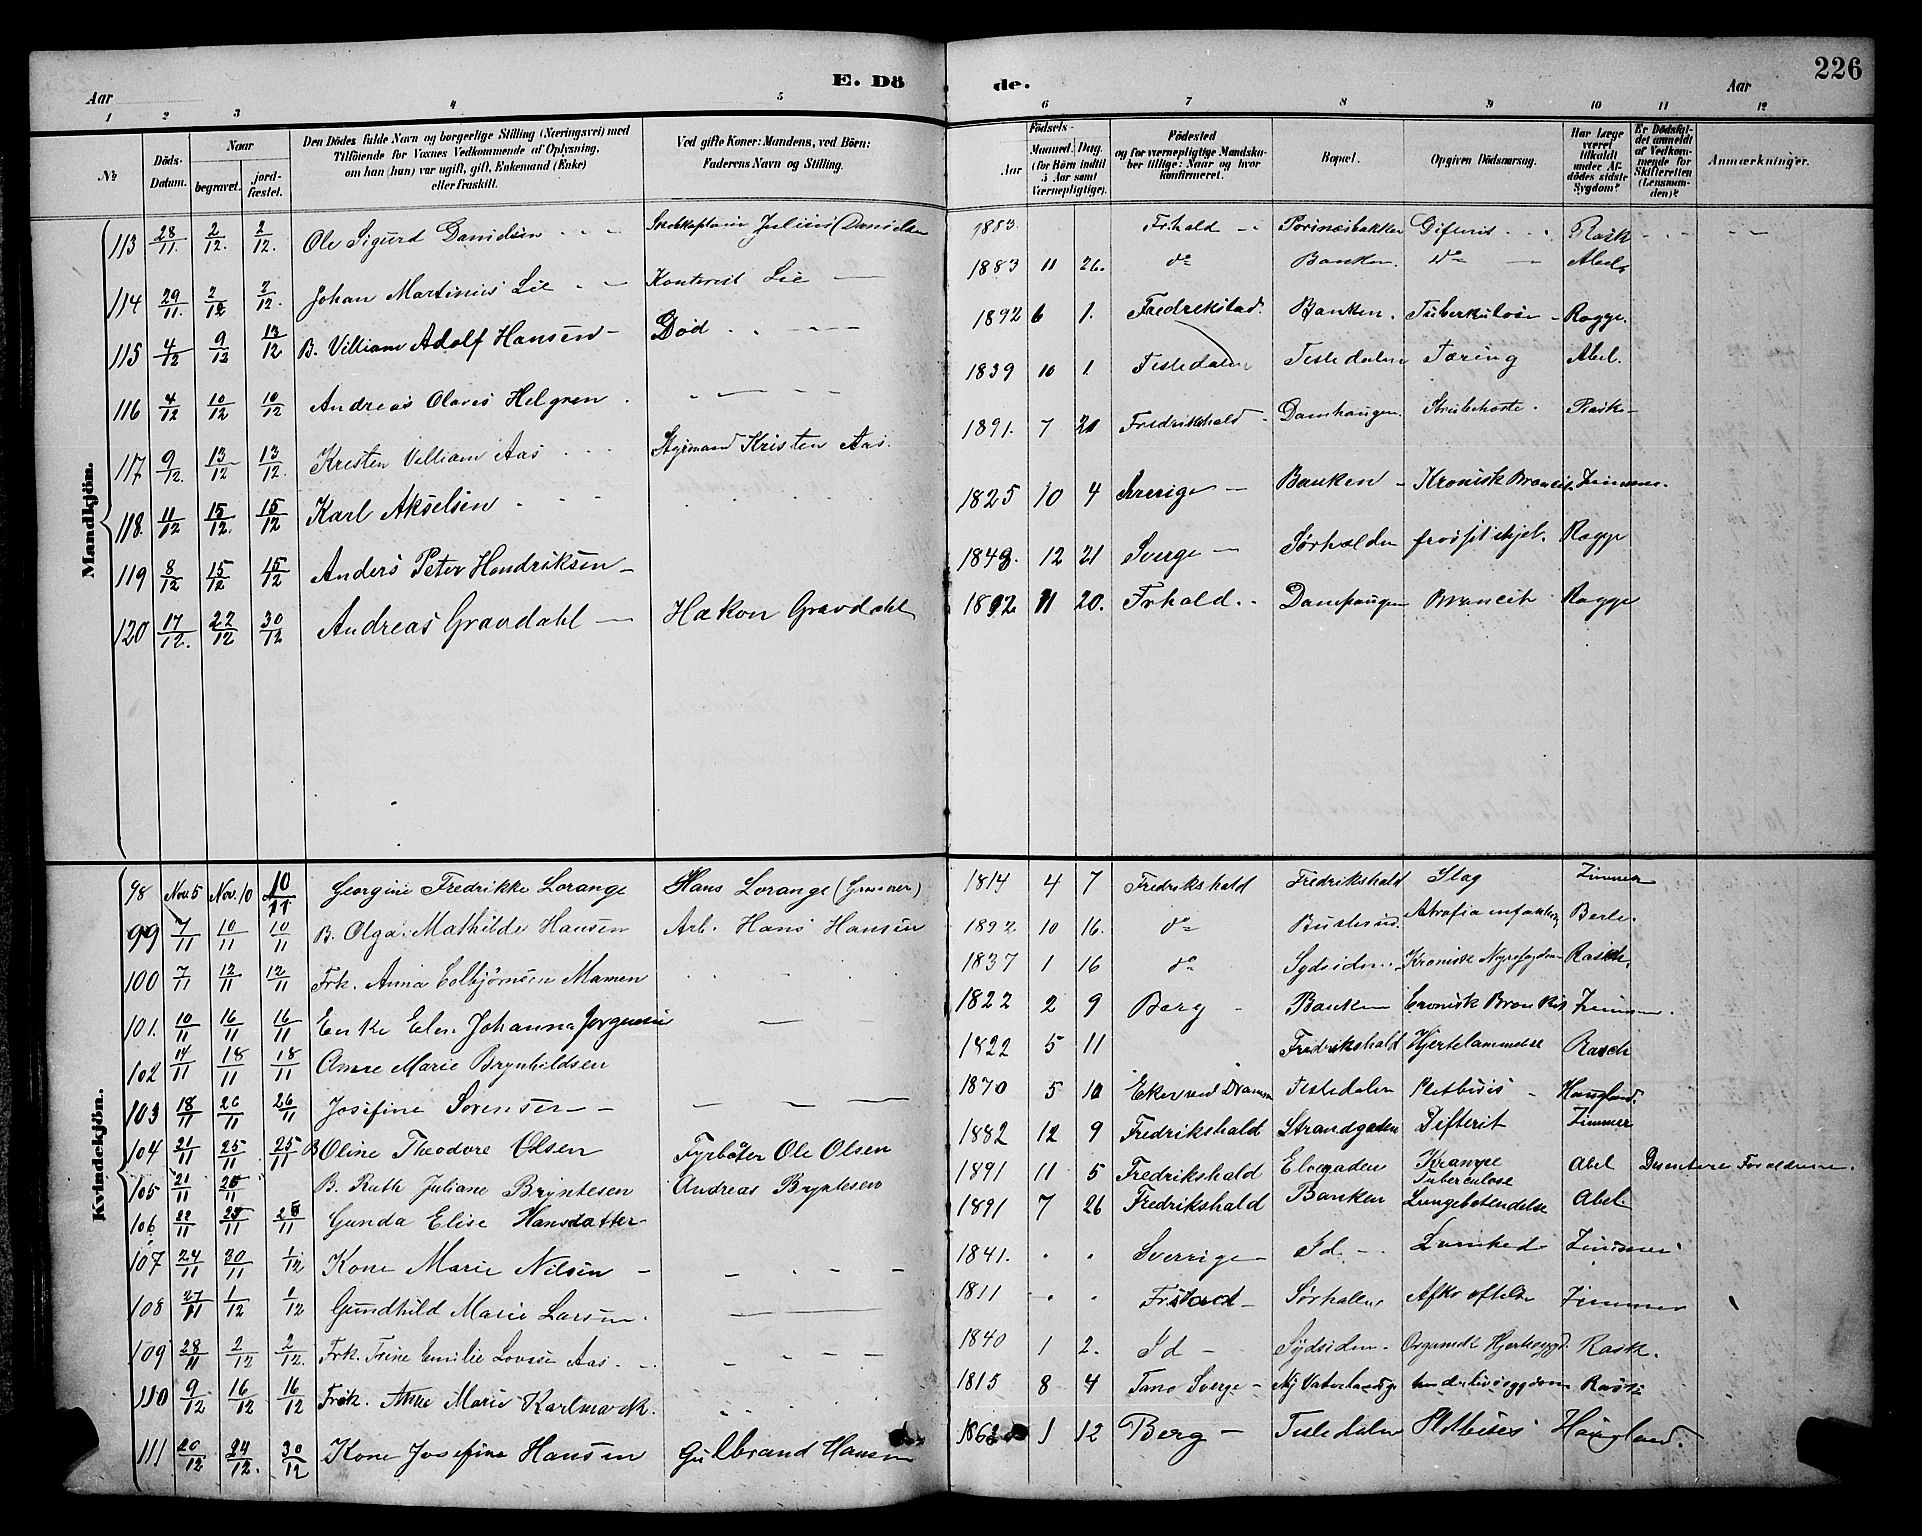 E. Dö de. 226
Aar Aar
1 2 3 4 5 6 7 8 9 10 11 12
No
Döds-Datum.
Naar
begravet.
jord-fæstet.
Den Dödes fulde Navn og borgerlige Stilling (Næringsvei) med
Tilföiende for Voxnes Vedkommende af Oplysning,
om han (hun) var ugift, gift, Enkemand (Enke)
eller fraskilt.
Ved gifte Koner: Mandens, ved Börn:
Faderens Navn og Stilling.
Födsels-
Aar
Maaned. Dag.
(for Börn indtil
5 Aar samt
Værnepligtige).
Födested
og for værnepligtige Mandska-
ber tillige: Naar og hvor
konfirmeret.
Bopæl.
Opgiven Dödsaarsag.
Har Læge
været
tilkaldt
under Af-
dödes sidste
Sygdom?
Er Dödsfal-
det anmeldt
af Vedkom-
mende for
Skifteretten
(Lensman-
den)?
Anmærkninger.
Mandkjön.
113 28/11. 2/12. 2/12. Ole Sigurd Danielsen Julius Danielsen 1883. Frhald Difterit Rask
114 29/11. 2/12 2/12. Johan Martinius Lie Lie 1883 11 26. do Banken do Abel
115 4/12 9/12 13/12 B. Villiam Adolf Hansen Död 1892 6 1. Fredrikstad. Banken. Tuberkulose Rogge.
116 4/12 10/12 10/12 Andreas Olaves Helgren 1839 10 1. Tistedalen Tistedalen Tæring Abel.
117 9/12. 13/12 13/12. Kristen Villiam Aas Styrmand Kristen Aas. 1891. 7 20 Fredrikshald Damhaugen. Strubehoste. Rask
118. 11/12 15/12. 15/12 Karl Akselsen 1825 10 4 Sverige Banken Kronisk Broncit. Zimmer.
119 8/12 15/12 15/12 Anders Peter Hendriksen 1848. 12 21 Sverge Sörhalden Rogge
120 17/12. 22/12 30/12 Andreas Gravdahl Hakon Gravdahl 1892 11 20. Frhald. Damhaugen Broncit Rogge
Kvindekjön.
98 Nov. 5 Nov. 10 10/11 Georgine Fredrikke Lorange Hans Lorange 1814 4 7 Fredrikshald Fredrikshald Slag Zimmer
99 7/11 10/11 10/11 B. Olga Mathilde Hansen Arb. Hans Hansen 1892 10 16. do Atrofia infantum
100 7/11 12/11 12/11 Frk. Anna Mamen 1837 1 16 do Sydsiden. Kronisk Rasch.
101. 10/11 16/11 16/11 Enke Elen Johanna Jörgensen 1822 2 9 Berg Banken Cronisk Bronkit Zimmer.
102 14/11 18/11 18/11 Anne Marie Brynhildsen 1822 5 11 Fredrikshald Hjertelammelse Rasch
103 18/11 26/11 26/11 Josefine Sörensen 1870 5 10 Eker ved Drammen Tistedalen Haugland.
104 21/11 25/11 25/11 B Oline Theodore Olsen Fyrböter Ole Olsen 1882 12 9 Fredrikshald Strandgaden Difterit Zimmer
105 21/11 25/11 B. Ruth Juliane Bryntesen Andreas Bryntesen 1891 11 5 Fredrikshald Elvegaden Krampe Tuberculose Abel
106 22/11 25/11 Gunda Elise Hansdatter 1891 7 26 Fredrikshald Banken Lungebetendelse Abel
107 24/11 30/11 1/12 Kone Marie Nilsen 1841. Sverrige Id Zimmer
108 27/11 1/12 1/12 Gundhild Marie Larsen. 1811 Sörhalden Zimmer
109 28/11 2/12 2/12. Frk. Trine Emilie Aas. 1840 1 2. Id Sydsiden. Organisk Rask.
110 9/12 16/12 16/12 Frk. Anne Marie Karlmark. 1815 8 4 Rask
111 20/12 24/12. 30/12 Kone Josefine Hansen Gulbrand Hansen 1 12 Berg Tistedalen Haugland.